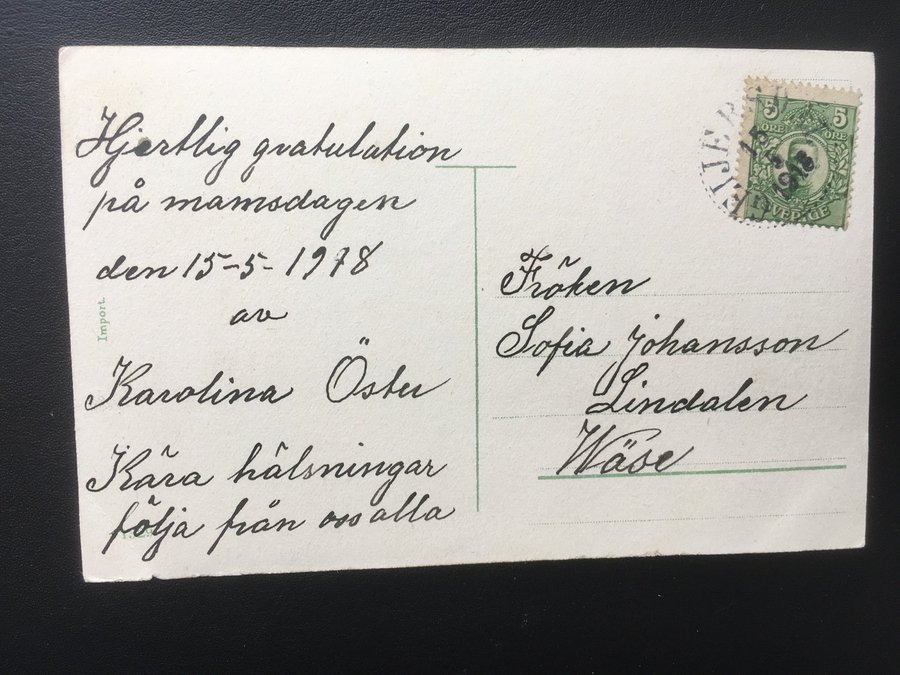 Hjertlig gratulation
på namsdagen
den 15-5-1918
av
Karolina Öster
Kära hälsningar
följa från oss alla
Import.
5 5
ÖRE ÖRE
SVERIGE
15 5
1918
Fröken
Sofia Johansson
Lindalen
Wäse